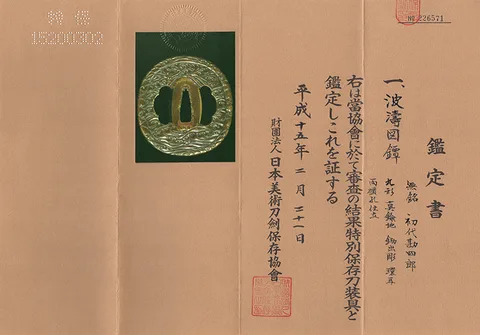 鑑定書
一、波濤図鐔
無銘 初代勘四郎
丸形 真鍮地 鋤出彫 環耳
両櫃孔
右は當協會に於て審査の結果特別保存刀装具と
鑑定しこれを証する
平成十五年二月二十一日
財團法人日本美術刀劍保存協會
特保
15200302
No 226571